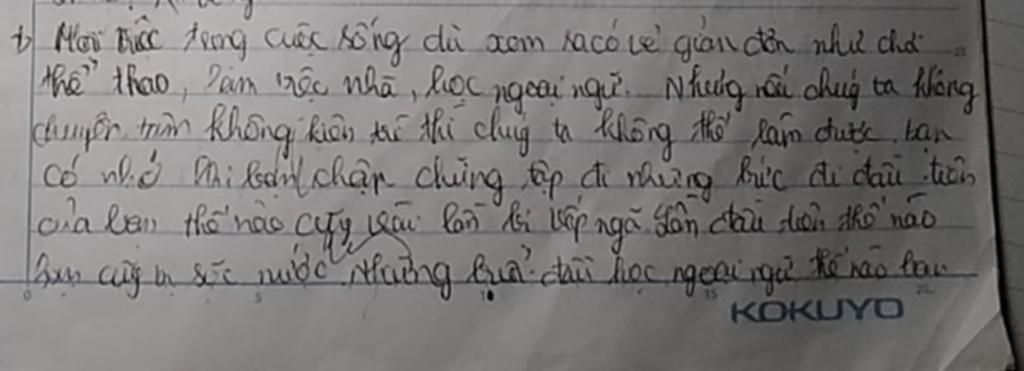 b) Mọi việc trong cuộc sống dù xem ra có vẻ giản đơn như chơi
thể thao, làm việc nhà, học ngoại ngữ. Nhưng nếu chúg ta không
chuyên tâm không kiên trì thì chúg ta không thể làm được. bạn
có nhớ khi bạn chập chững tập đi những bước đi đầu tiên
của bạn thế nào cũg vài lần bị vấp ngã lần đầu tiên thế nào
bạn cũg bị sặc nước Những buổi đầu học ngoại ngữ thế nào bạn
KOKUYO